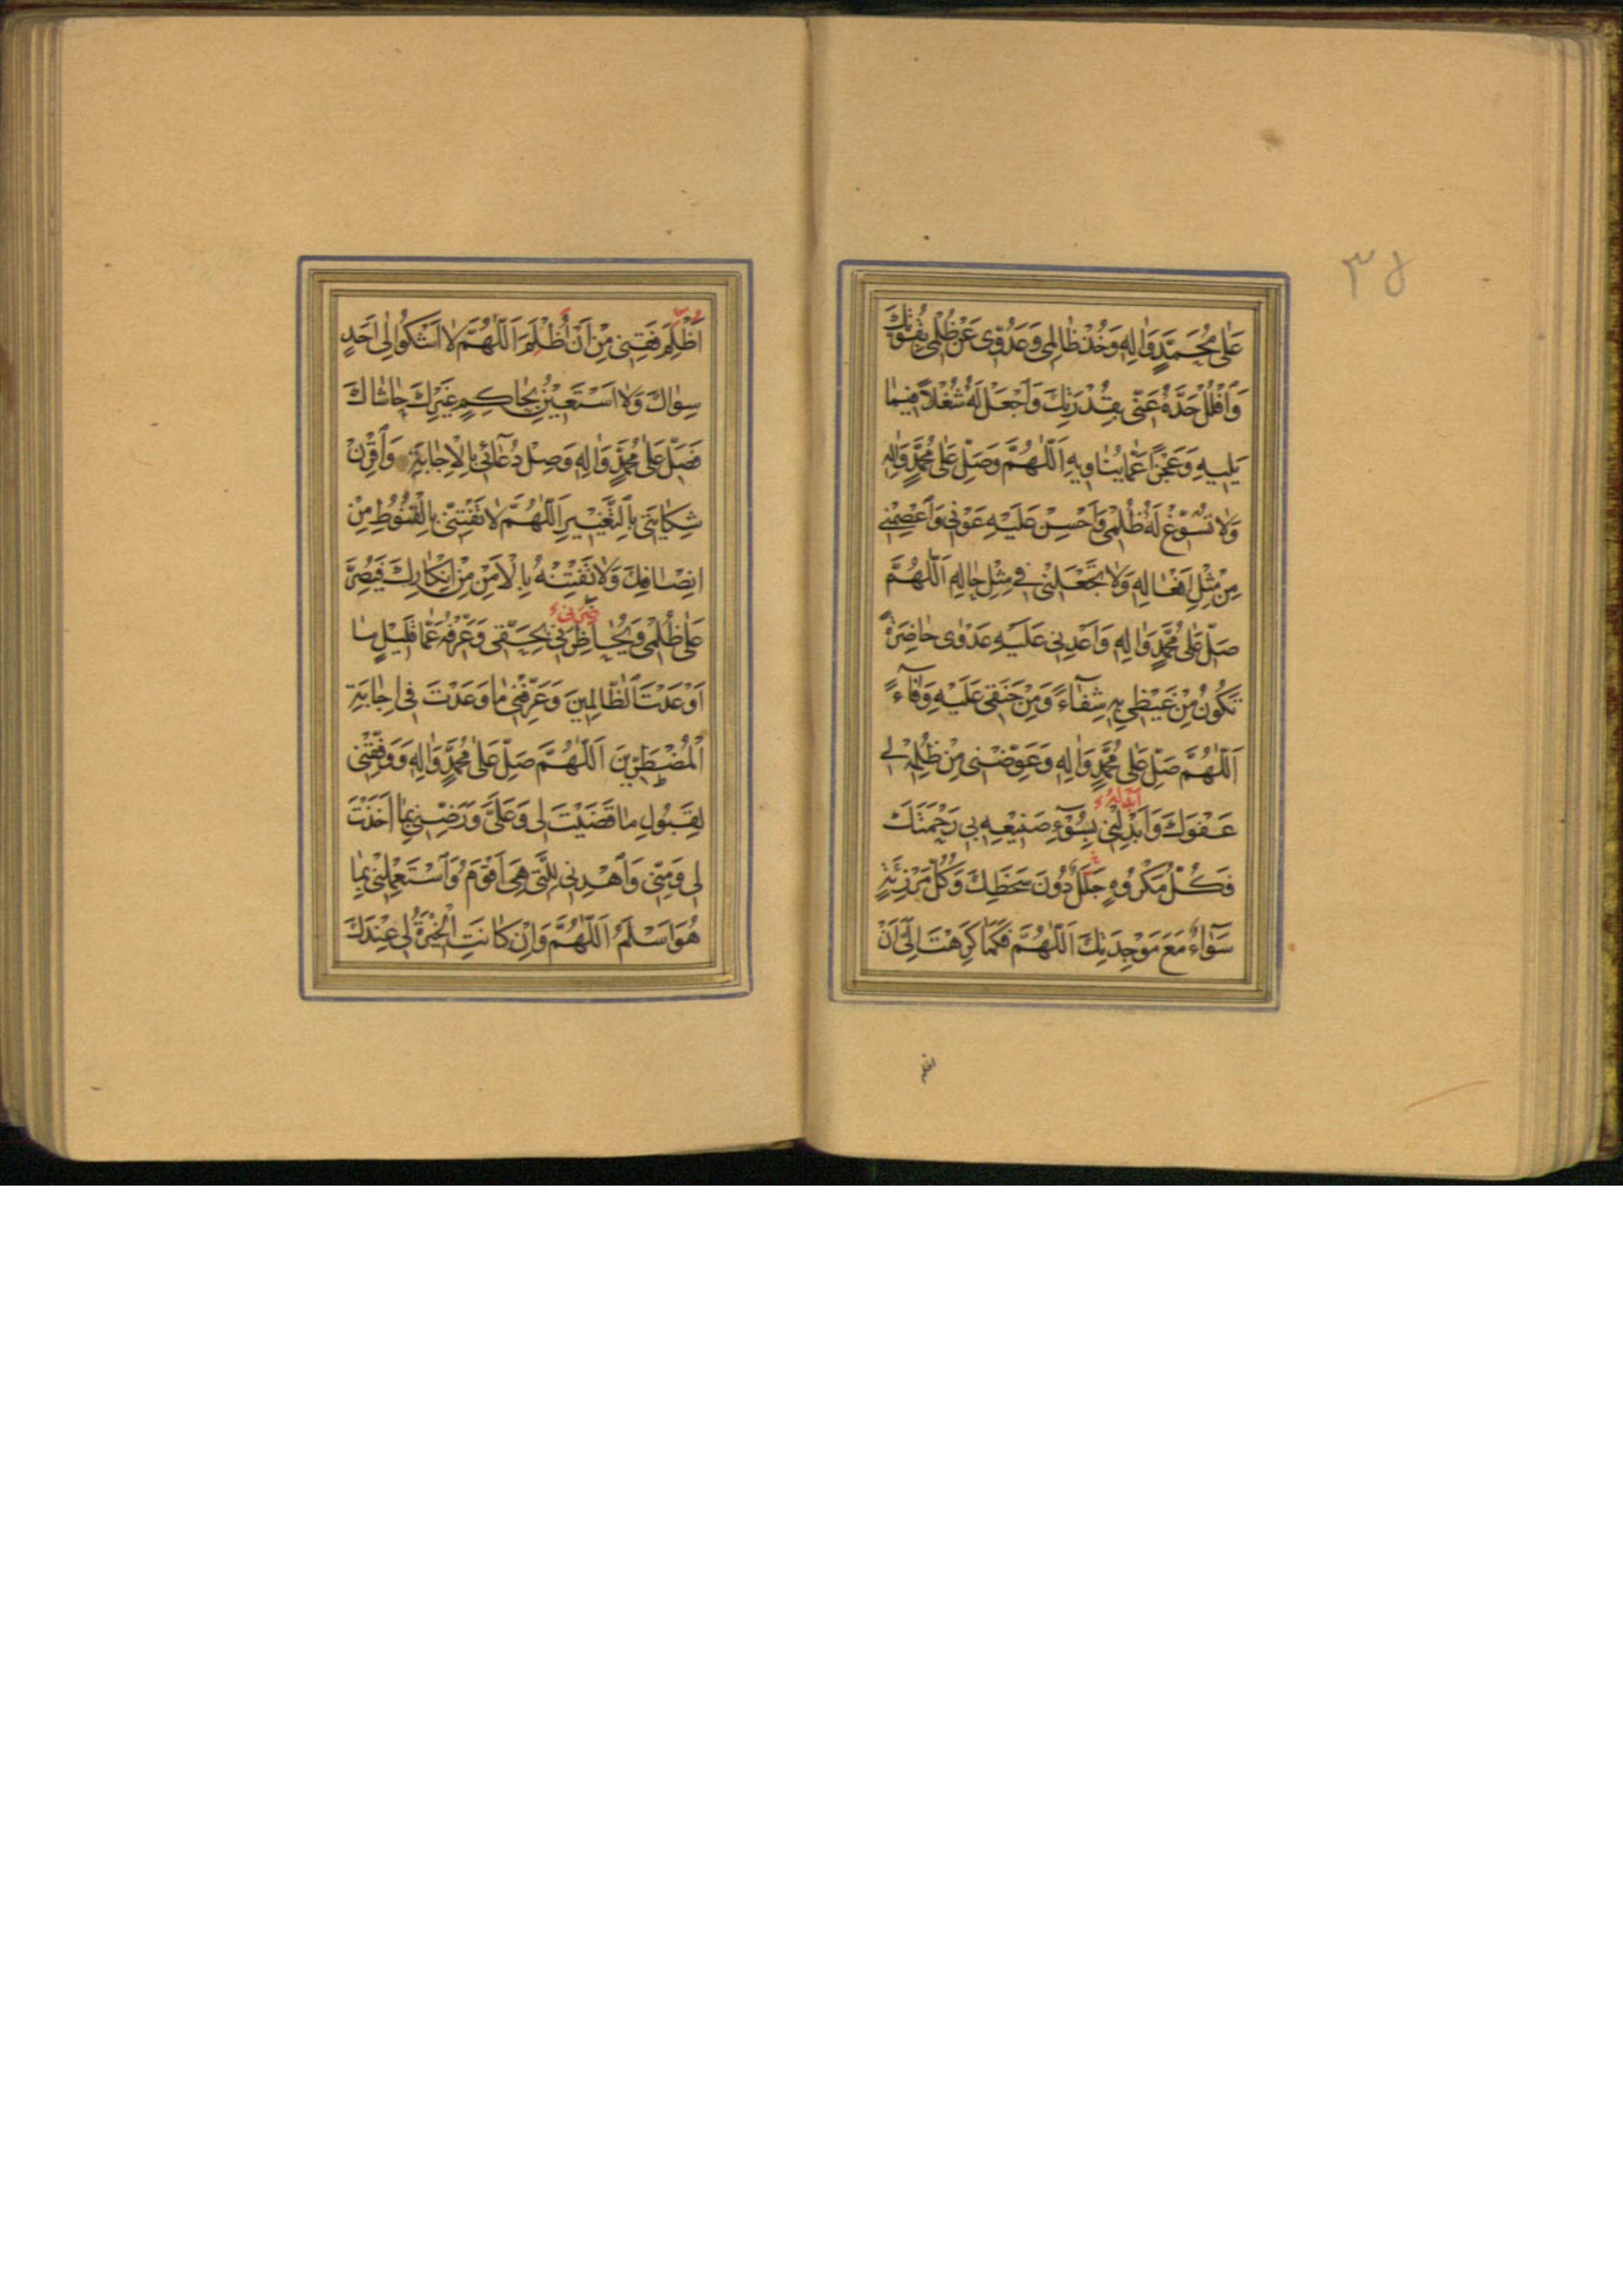 ۳۵
عَلٰى مُحَمَّدٍ وَاٰلِهِ وَخُذْ ظٰالِمى وَعَدُوّى عَنْ ظُلْمى بِقُوَّتِكَ
وَافْلُلْ حَدَّهُ عَنّى بِقُدْرَتِكَ وَاجْعَلْ لَهُ شُغْلاً فيمٰا
يَليهِ وَعَجْزًا عَمّٰا يُنٰاويهِ اَللّٰهُمَّ وَصَلِّ عَلٰى مُحَمَّدٍ وَاٰلِهِ
وَلاٰ تُسَوِّغْ لَهُ ظُلْمى وَاَحْسِنْ عَلَيْهِ عَوْنى وَاعْصِمْنى
مِنْ مِثْلِ اَفْعٰالِهِ وَلاٰ تَجْعَلْنى فى مِثْلِ حٰالِهِ اَللّٰهُمَّ
صَلِّ عَلٰى مُحَمَّدٍ وَاٰلِهِ وَاَعْدِنى عَلَيْهِ عَدْوٰى حٰاضِرَةً
تَكُونُ مِنْ غَيْظى بِهِ شِفٰآءً وَمِنْ حَنَقى عَلَيْهِ وَفٰآءً
اَللّٰهُمَّ صَلِّ عَلٰى مُحَمَّدٍ وَاٰلِهِ وَعَوِّضْنى مِنْ ظُلْمِهِ لى
عَفْوَكَ وَاَبْدِلْنى بِسُوٓءِ صَنيعِهِ بى رَحْمَتَكَ
فَكُلُّ مَكْرُوهٍ جَلَلٌ دُونَ سَخَطِكَ وَكُلُّ مَرْزِئَةٍ
سَوٰآءٌ مَعَ مَوْجِدَتِكَ اَللّٰهُمَّ فَكَمٰا كَرَّهْتَ اِلَىَّ اَنْ
اَظْلِمَ فَقِنى مِنْ اَنْ اُظْلَمَ اَللّٰهُمَّ لاٰ اَشْكُو اِلٰى اَحَدٍ
سِوٰاكَ وَلاٰ اَسْتَعينُ بِحٰاكِمٍ غَيْرِكَ حٰاشٰاكَ
فَصَلِّ عَلٰى مُحَمَّدٍ وَاٰلِهِ وَصِلْ دُعٰآئى بِالْاِجٰابَةِ وَاقْرِنْ
شِكٰايَتى بِالتَّغْييرِ اَللّٰهُمَّ لاٰ تَفْتِنّى بِالْقُنُوطِ مِنْ
اِنْصٰافِكَ وَلاٰ تَفْتِنْهُ بِالْاَمْنِ مِنْ اِنْكٰارِكَ فَيُصِرَّ
عَلٰى ظُلْمى وَيُحٰاظِرَنى بِحَقّى وَعَرِّفْهُ عَمّٰا قَليلٍ مٰا
اَوْعَدْتَ الظّٰالِمينَ وَعَرِّفْنى مٰا وَعَدْتَ فى اِجٰابَةِ
الْمُضْطَرّينَ اَللّٰهُمَّ صَلِّ عَلٰى مُحَمَّدٍ وَاٰلِهِ وَوَفِّقْنى
لِقَبُولِ مٰا قَضَيْتَ لى وَعَلَىَّ وَرَضِّنى بِمٰا اَخَذْتَ
لى وَمِنّى وَاهْدِنى لِلَّتى هِىَ اَقْوَمُ وَاسْتَعْمِلْنى بِمٰا
هُوَ اَسْلَمُ اَللّٰهُمَّ وَاِنْ كٰانَتِ الْخِيَرَةُ لى عِنْدَكَ